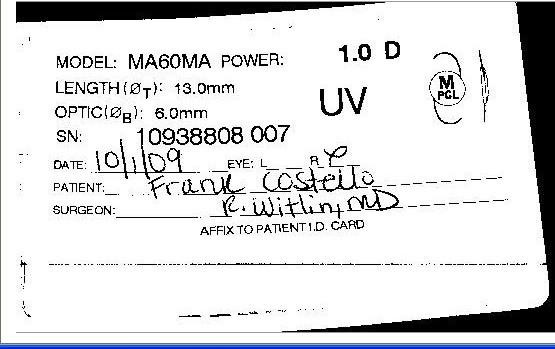 MODEL: MA60MA POWER: 1.0 D
LENGTH (ØT): 13.0mm
OPTIC (ØB): 6.0mm
UV
M
PCL
SN: 10938808 007
DATE: 10/1/09 EYE: L R
PATIENT: Frank Costello
SURGEON: R. Witlin, MD
AFFIX TO PATIENT I.D. CARD